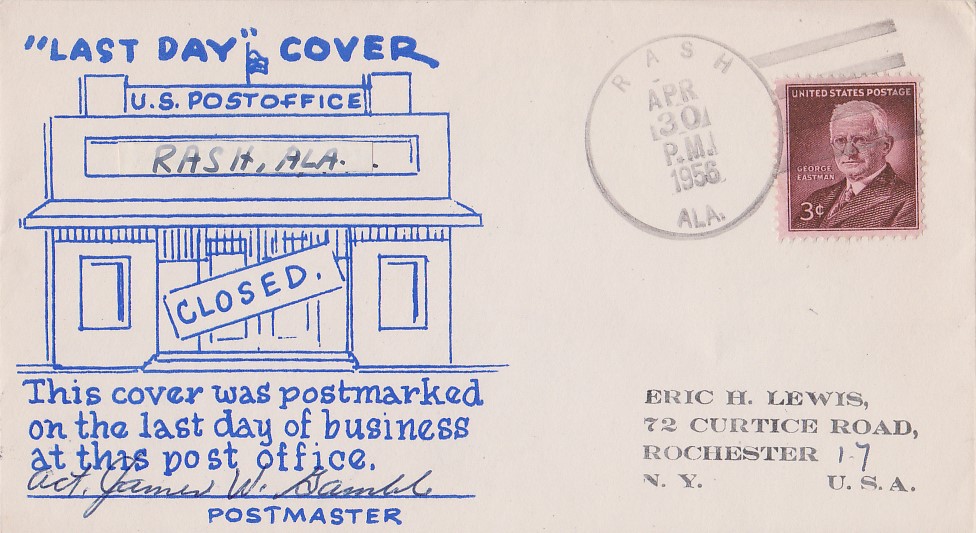 "LAST DAY" COVER
U.S. POSTOFFICE
RASH, ALA.
CLOSED.
This cover was postmarked
on the last day of business
at this post office.
Act. James W. Gamble
POSTMASTER
RASH
APR
30
P.M.
1956
ALA.
UNITED STATES POSTAGE
GEORGE
EASTMAN
3¢
ERIC H. LEWIS,
72 CURTICE ROAD,
ROCHESTER 17
N. Y. U. S. A.